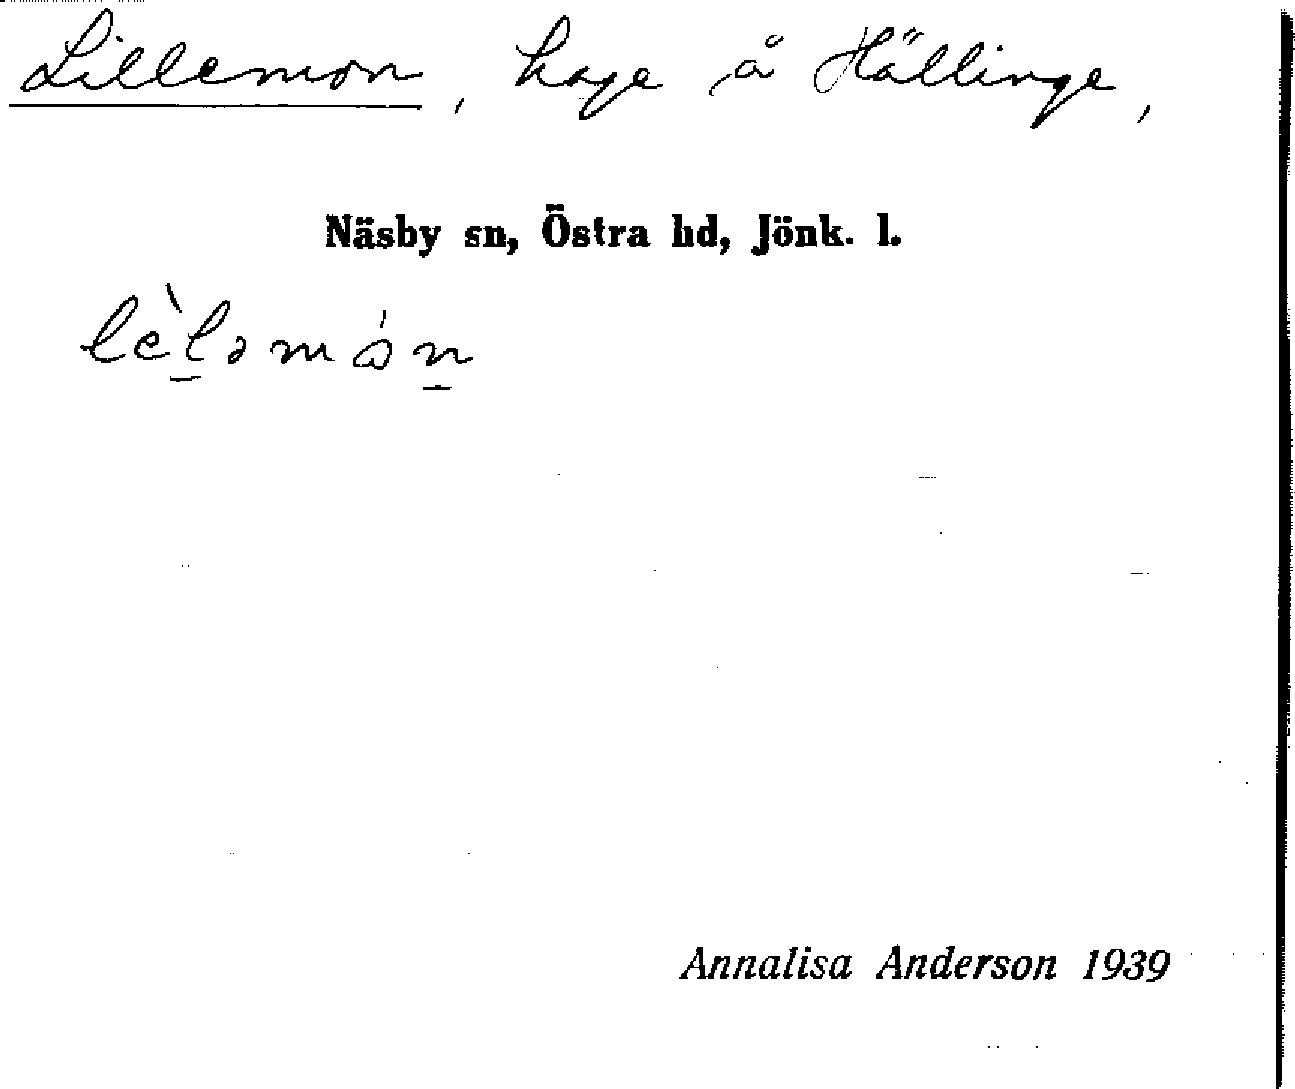 Lillemon, hage å Hällinge,
Näsby sn, Östra hd, Jönk. l.
lèl̠əmón̠
Annalisa Anderson 1939